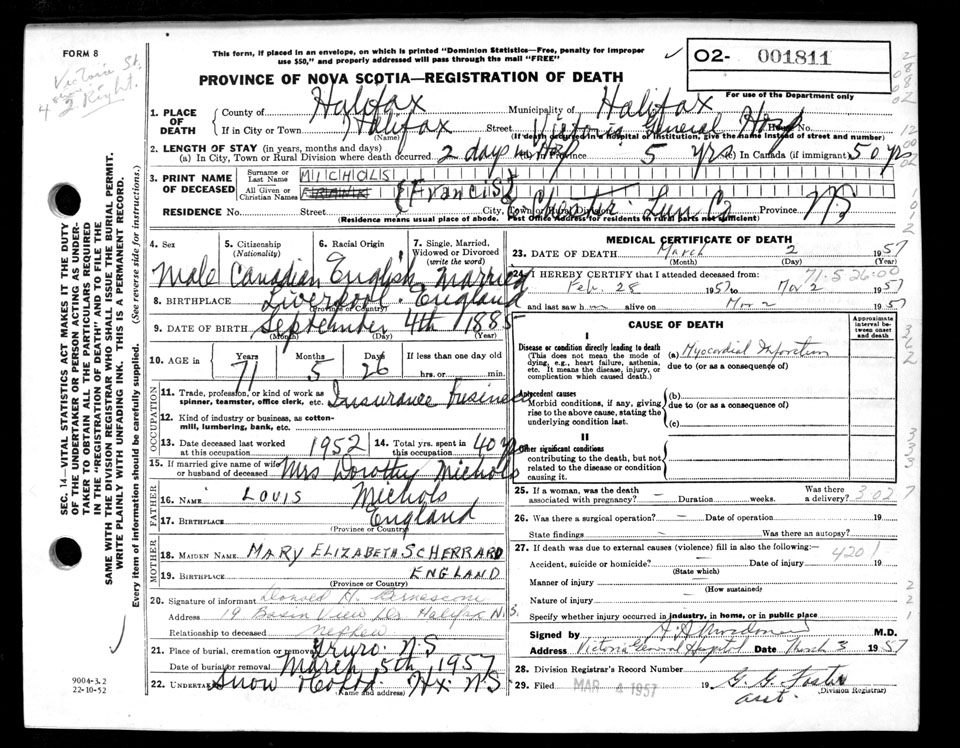 FORM 8
Victoria St.
4
2 Right.
This form, if placed in an envelope, on which is printed "Dominion Statistics—Free, penalty for improper
use $50," and properly addressed will pass through the mail "FREE"
PROVINCE OF NOVA SCOTIA—REGISTRATION OF DEATH
02- 001811
For use of the Department only
1. PLACE OF DEATH
County of Halifax Municipality of Halifax
If in City or Town Halifax (Name) Street Victoria General Hosp House No.
(If death occurred in a hospital or institution, give the name instead of street and number)
2. LENGTH OF STAY (in years, months and days)
(a) In City, Town or Rural Division where death occurred 2 days in Hosp (b) In Province 5 yrs (c) In Canada (if immigrant) 50 yrs
3. PRINT NAME OF DECEASED
Surname or Last Name NICHOLS
All Given or Christian Names FRANK (Francis)
RESIDENCE No. Street City, Town or Rural Division Chester Lun Co Province NS
(Residence means usual place of abode. Post Office Address for residents in rural parts not sufficient)
4. Sex Male
5. Citizenship (Nationality) Canadian
6. Racial Origin English
7. Single, Married, Widowed or Divorced (write the word) Married
8. BIRTHPLACE Liverpool. England
(Province or Country)
9. DATE OF BIRTH September 4th 1885
(Month) (Day) (Year)
10. AGE in Years 71 Months 5 Days 26 If less than one day old hrs. or min.
OCCUPATION
11. Trade, profession, or kind of work as spinner, teamster, office clerk, etc. Insurance business
12. Kind of industry or business, as cotton-mill, lumbering, bank, etc.
13. Date deceased last worked at this occupation 1952
14. Total yrs. spent in this occupation 40 yrs
15. If married give name of wife or husband of deceased Mrs Dorothy Nichols
FATHER
16. NAME LOUIS Nichols
17. BIRTHPLACE England
(Province or Country)
MOTHER
18. MAIDEN NAME MARY ELIZABETH SCHERRARD
19. BIRTHPLACE ENGLAND
(Province or Country)
20. Signature of informant Donald H. Bernascone
Address 19 Basin View Dr Halifax N.S.
Relationship to deceased nephew
21. Place of burial, cremation or removal Truro. N.S
Date of burial or removal March 5th 1957
22. UNDERTAKER Snow Hx. NS
(Name and address)
MEDICAL CERTIFICATE OF DEATH
23. DATE OF DEATH March 2 1957
(Month) (Day) (Year)
71-5 26-00
24. I HEREBY CERTIFY that I attended deceased from:
Feb. 28 1957 to Mar 2 1957
and last saw him alive on Mar 2 1957
CAUSE OF DEATH
Approximate interval between onset and death
I
Disease or condition directly leading to death
(This does not mean the mode of dying, e.g., heart failure, asthenia, etc. It means the disease, injury, or complication which caused death.)
(a) Myocardial Infarction
due to (or as a consequence of)
Antecedent causes
Morbid conditions, if any, giving rise to the above cause, stating the underlying condition last.
(b)
due to (or as a consequence of)
(c)
II
Other significant conditions
contributing to the death, but not related to the disease or condition causing it.
25. If a woman, was the death associated with pregnancy? — Duration weeks. Was there a delivery? 3027
26. Was there a surgical operation? — Date of operation 19
State findings Was there an autopsy?
27. If death was due to external causes (violence) fill in also the following:—
4201
Accident, suicide or homicide? (State which) Date of injury 19
Manner of injury (How sustained)
Nature of injury
Specify whether injury occurred in industry, in home, or in public place
Signed by M.D.
Address Victoria General Hospital Date March 3 1957
28. Division Registrar's Record Number
29. Filed MAR 4 1957 19 G. G. Foster
asst. (Division Registrar)
SEC. 14—VITAL STATISTICS ACT MAKES IT THE DUTY
OF THE UNDERTAKER OR PERSON ACTING AS UNDER-
TAKER TO OBTAIN ALL THE PARTICULARS REQUIRED
IN THE "REGISTRATION OF DEATH" AND TO FILE THE
SAME WITH THE DIVISION REGISTRAR WHO SHALL ISSUE THE BURIAL PERMIT.
WRITE PLAINLY WITH UNFADING INK. THIS IS A PERMANENT RECORD.
Every item of information should be carefully supplied. (See reverse side for instructions.)
9004-3.2
22-10-52